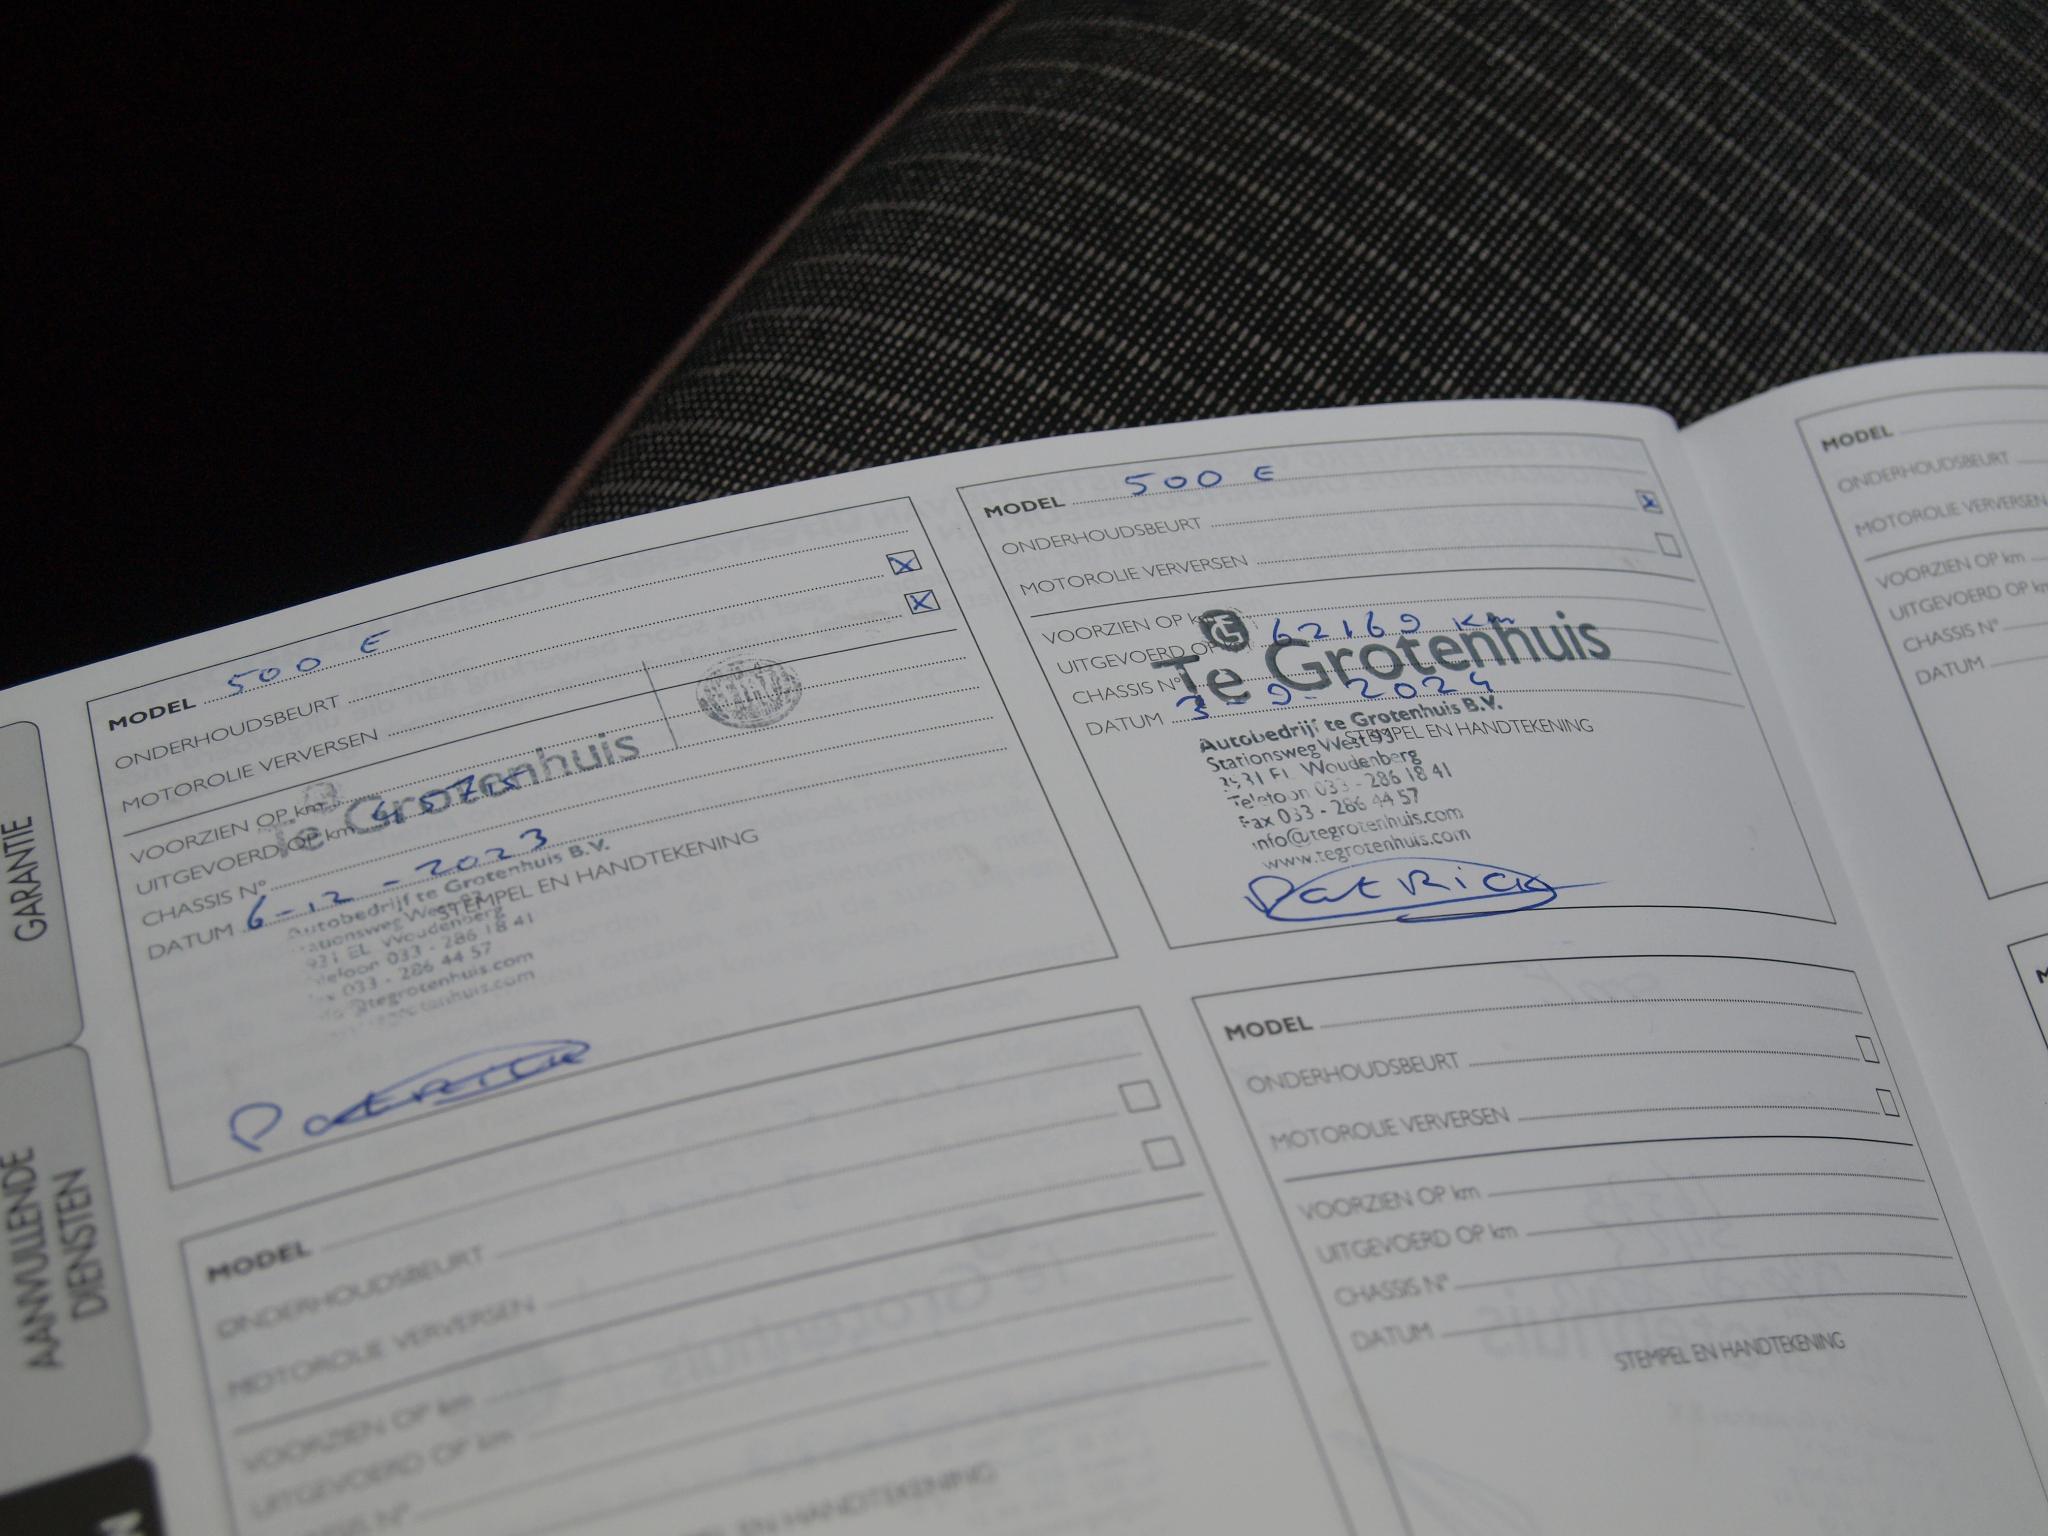 GARANTIE
AANVULLENDE
DIENSTEN
MODEL 500 E
ONDERHOUDSBEURT
MOTOROLIE VERVERSEN
VOORZIEN OP km
UITGEVOERD OP km
Te Grotenhuis
CHASSIS N°
DATUM 6-12-2023
STEMPEL EN HANDTEKENING
Autobedrijf te Grotenhuis B.V.
EL Woudenberg
033 - 286 18 41
033 - 286 44 57
@tegrotenhuis.com
Patrick
MODEL 500 E
ONDERHOUDSBEURT
MOTOROLIE VERVERSEN
VOORZIEN OP km 62169 km
UITGEVOERD OP km
Te Grotenhuis
CHASSIS N°
DATUM 3-9-2024
STEMPEL EN HANDTEKENING
Autobedrijf te Grotenhuis B.V.
Stationsweg West 93
3931 EL Woudenberg
Telefoon 033 - 286 18 41
Fax 033 - 286 44 57
info@tegrotenhuis.com
www.tegrotenhuis.com
Patrick
MODEL
ONDERHOUDSBEURT
MOTOROLIE VERVERSEN
VOORZIEN OP km
UITGEVOERD OP km
CHASSIS N°
DATUM
MODEL
ONDERHOUDSBEURT
MOTOROLIE VERVERSEN
VOORZIEN OP km
UITGEVOERD OP km
CHASSIS N°
EN HANDTEKENING
MODEL
ONDERHOUDSBEURT
MOTOROLIE VERVERSEN
VOORZIEN OP km
UITGEVOERD OP km
CHASSIS N°
DATUM
STEMPEL EN HANDTEKENING